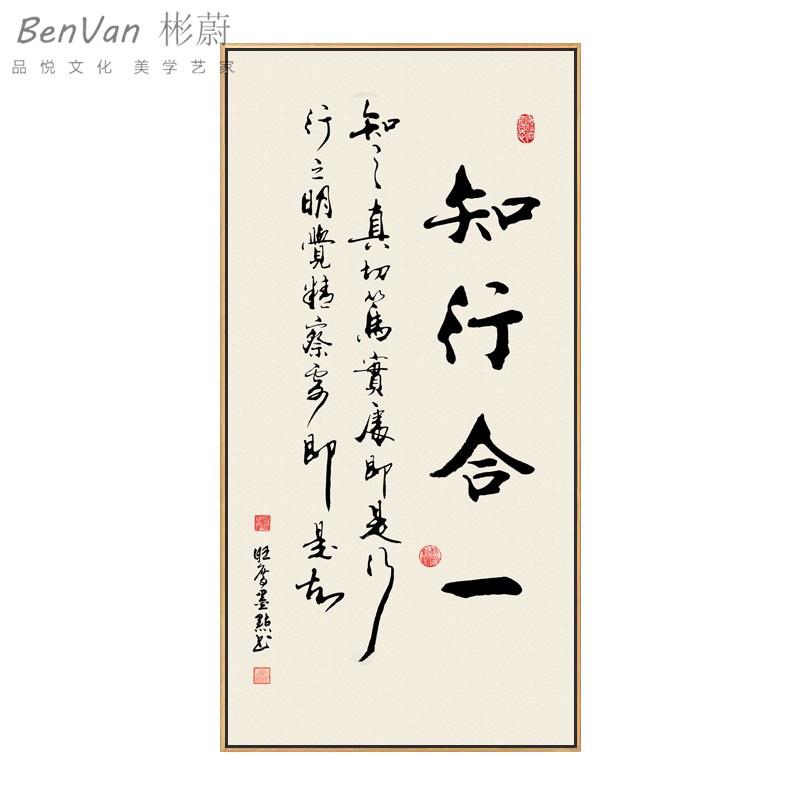 BenVan 彬蔚
品悦文化 美学艺家
知行合一
知之真切篤實處即是行
行之明覺精察處即是知
墨點書